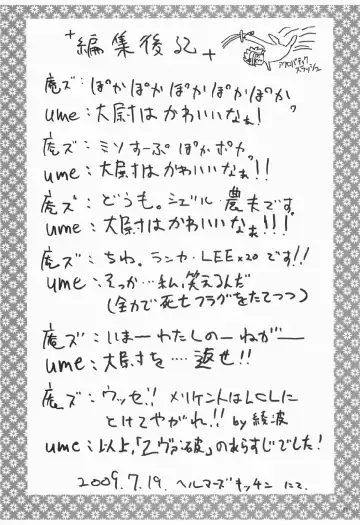 +編集後記+
アクロバティック
スラッシュ
庵ズ:ぽかぽかぽかぽかぽか
ume:大尉はかわいいなぁ!
庵ズ:ミソすーぷぽかポカ
ume:大尉はかわいいなぁ!!
庵ズ:どうも。シエル・農夫です
ume:大尉はかわいいなぁ!!!
庵ズ:ちわ。ランカ・LEE×20です!!
ume:そっか…私、笑えるんだ
(全力で死亡フラグをたてつつ)
庵ズ:いまーわたしのーねがーー
ume:大尉を…返せ!!
庵ズ:ウッセ!!メリケントはLCLに
とけてやがれ!! by綾波
ume:以上、「ヱヴァ破」のあらすじでした!
2009.7.19. ヘルマーズキッチン にて.